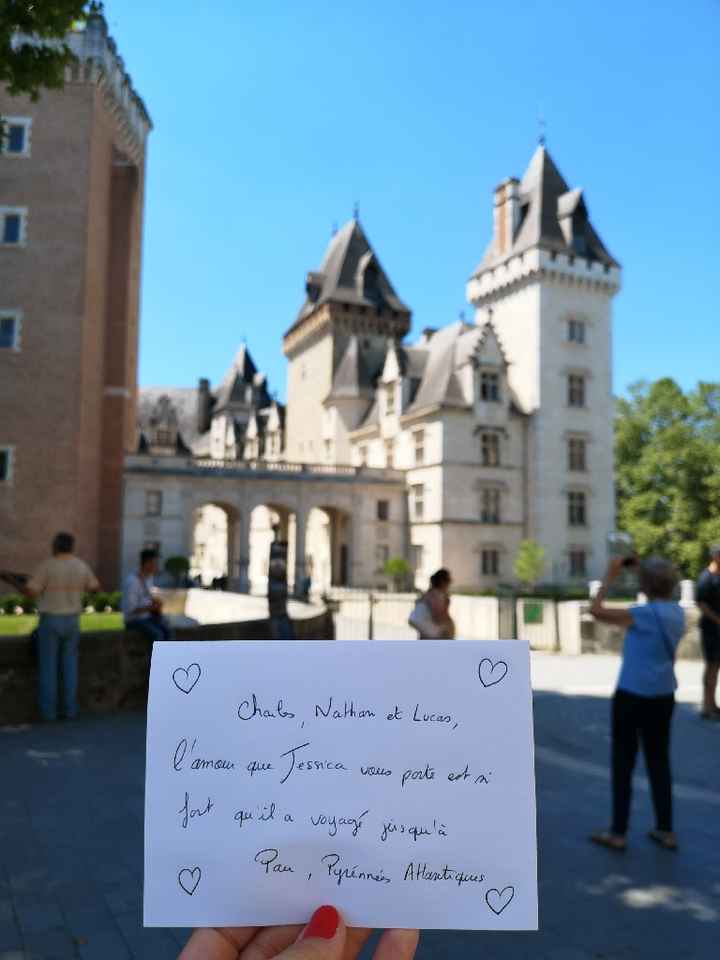 Charles, Nathan et Lucas,
l'amour que Jessica vous porte est si
fort qu'il a voyagé jusqu'à
Pau, Pyrénnées Atlantiques